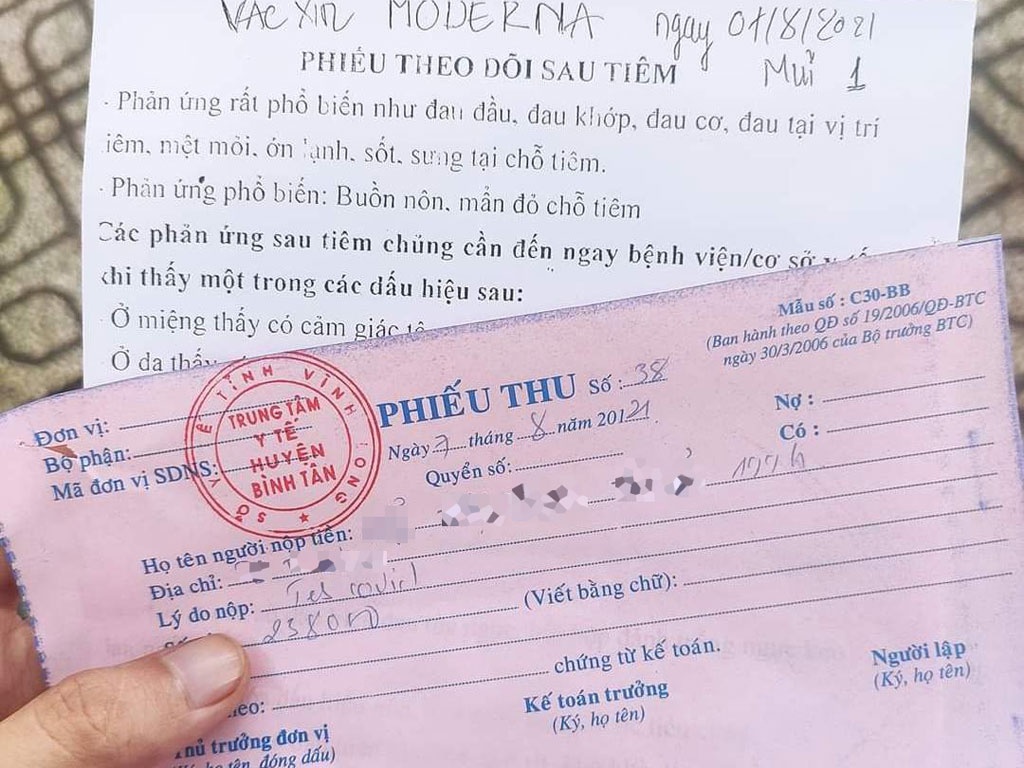 VẮC XIN MODERNA ngày 07/8/2021
PHIẾU THEO DÕI SAU TIÊM Mũi 1
- Phản ứng rất phổ biến như đau đầu, đau khớp, đau cơ, đau tại vị trí
iêm, mệt mỏi, ớn lạnh, sốt, sưng tại chỗ tiêm.
- Phản ứng phổ biến: Buồn nôn, mẩn đỏ chỗ tiêm
Các phản ứng sau tiêm chủng cần đến ngay bệnh viện/cơ sở y tế
khi thấy một trong các dấu hiệu sau:
- Ở miệng thấy có cảm giác
- Ở da thấy
Mẫu số : C30-BB
(Ban hành theo QĐ số 19/2006/QĐ-BTC
ngày 30/3/2006 của Bộ trưởng BTC)
Đơn vị:
Bộ phận:
Mã đơn vị SDNS:
SỞ Y TẾ TỈNH VĨNH LONG
TRUNG TÂM
Y TẾ
HUYỆN
BÌNH TÂN
PHIẾU THU Số : 38
Ngày 7 tháng 8 năm 20121
Quyển số:
Nợ :
Có :
Họ tên người nộp tiền: 1996
Địa chỉ:
Lý do nộp: Test covid
238000 (Viết bằng chữ):
heo: chứng từ kế toán.
hủ trưởng đơn vị
họ tên, đóng dấu)
Kế toán trưởng
(Ký, họ tên)
Người lập
(Ký, họ tên)